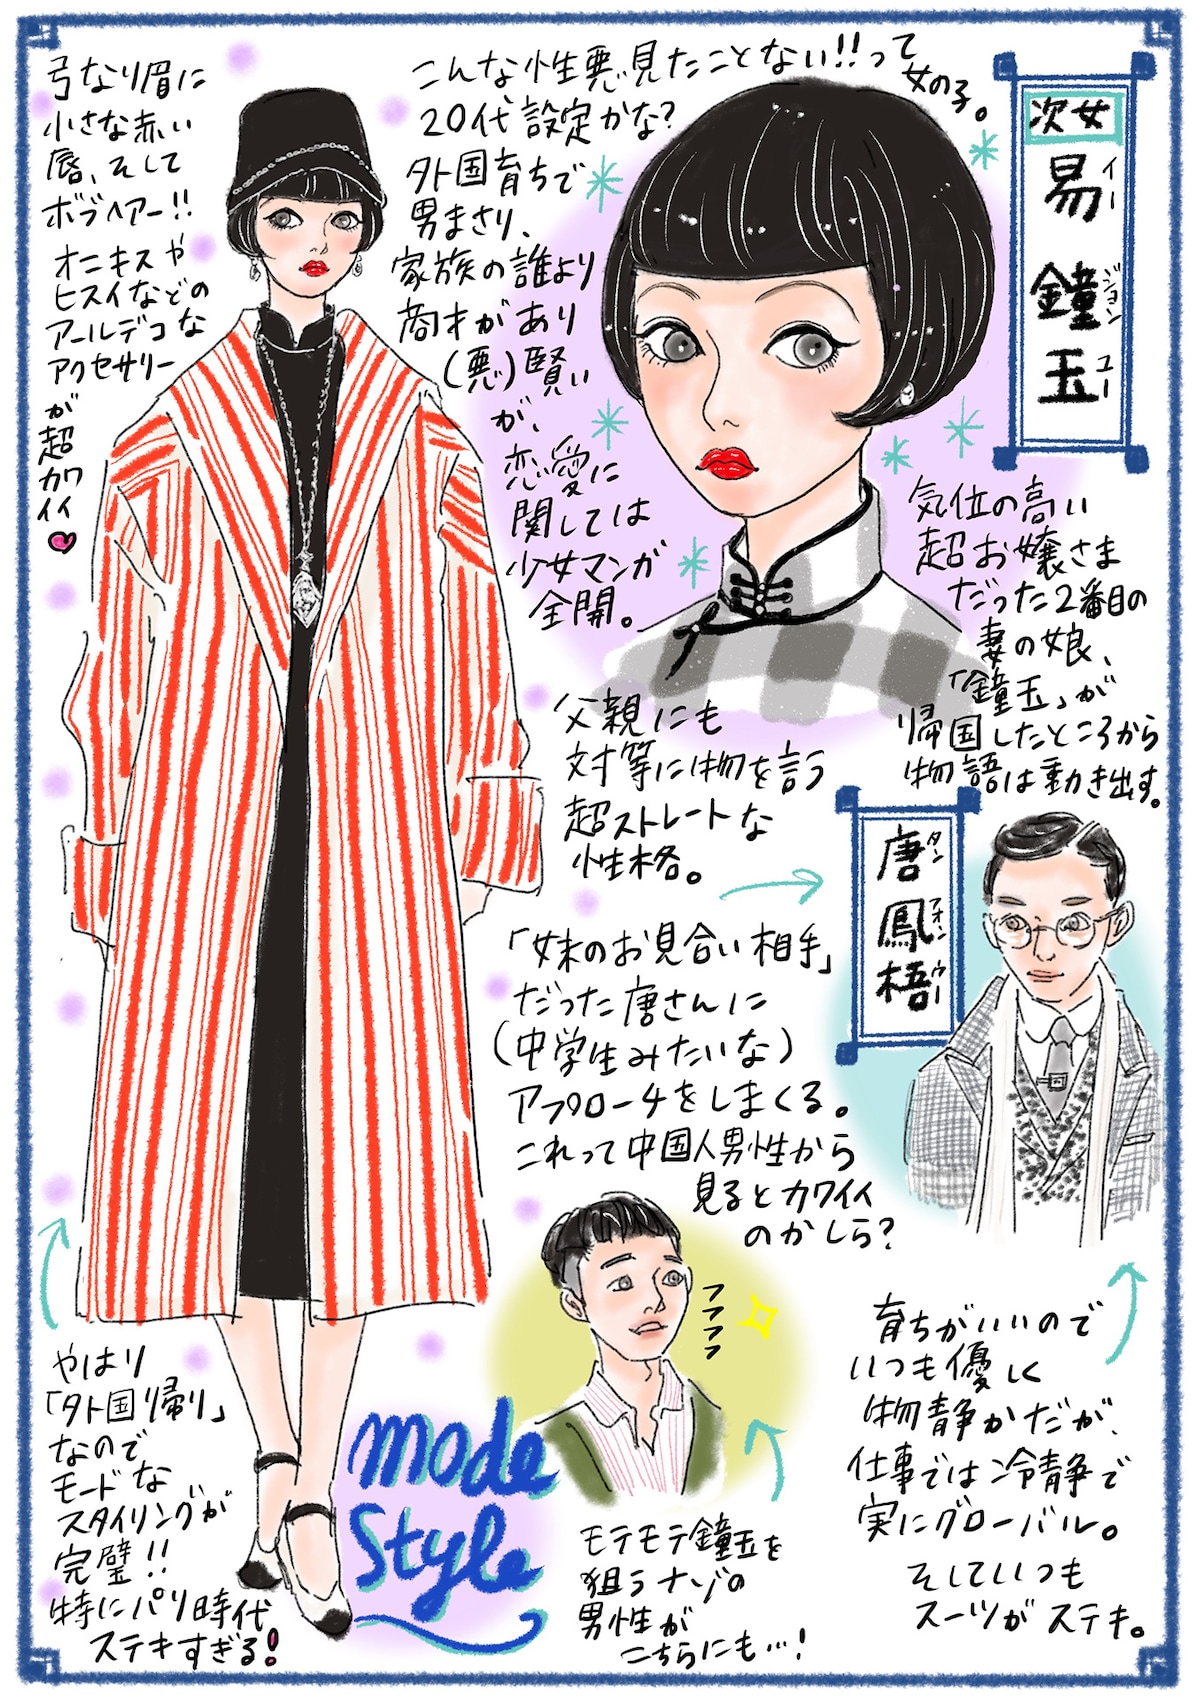 弓なり眉に
小さな赤い
唇、そして
ボブヘアー!!
オニキスや
ヒスイなどの
アールデコな
アクセサリー
が超カワイイ
こんな性悪見たことない!!って
女の子。
20代設定かな?
外国育ちで
男まさり、
家族の誰より
商才があり
(悪)賢い
が、
恋愛に
関しては
少女マンガ
全開。
次女
易鐘玉
イー ジョン ユー
気位の高い
超お嬢さま
だった2番目の
妻の娘、
「鐘玉」が
帰国したところから
物語は動き出す。
父親にも
対等に物を言う
超ストレートな
性格。
唐鳳梧
タン フォン ウー
「妹のお見合い相手」
だった唐さんに
(中学生みたいな)
アプローチをしまくる。
これって中国人男性から
見るとカワイイ
のかしら?
フフフフ
モテモテ鐘玉を
狙うナゾの
男性が
こちらにも…!
育ちがいいので
いつも優しく
物静かだが、
仕事では冷静で
実にグローバル。
そしていつも
スーツがステキ。
やはり
「外国帰り」
なので
モードな
スタイリングが
完璧!!
特にパリ時代
ステキすぎる!
mode
style